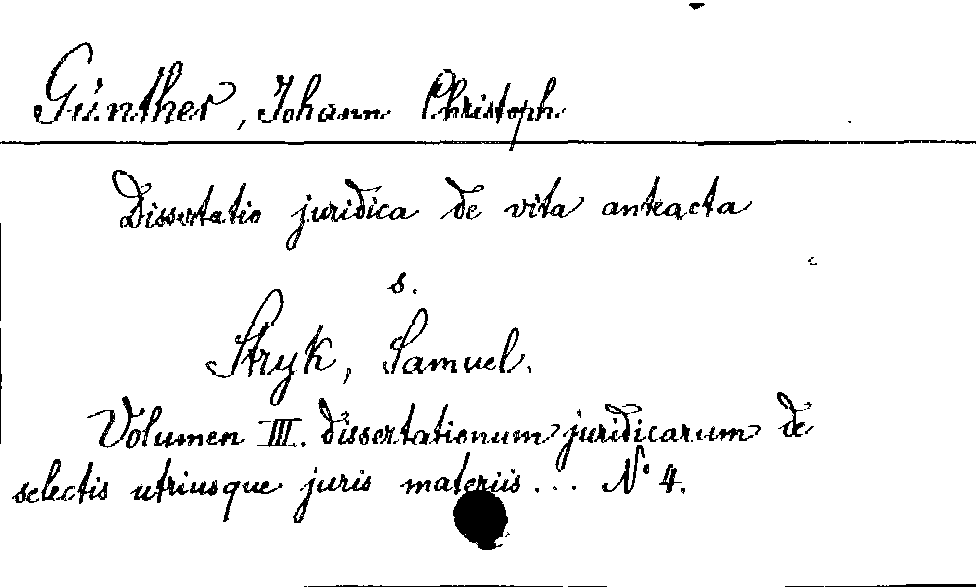 Günther, Johann Christoph
Dissertatio juridica de vita anteacta
s.
Stryk, Samuel.
Volumen III. dissertationum juridicarum de
selectis utriusque juris materiis... N° 4.